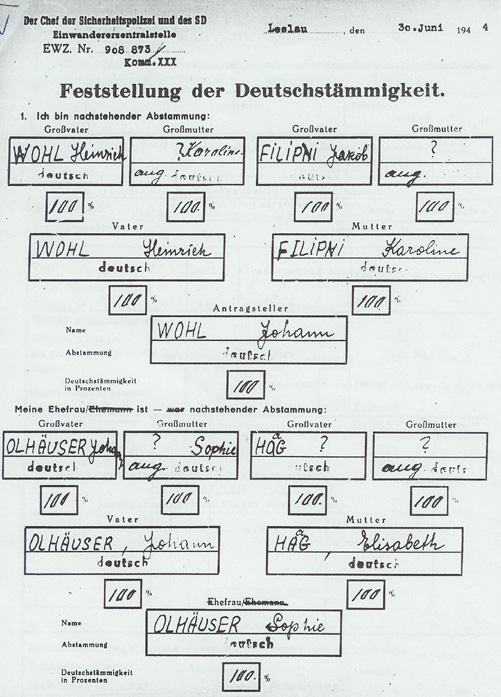 Der Chef der Sicherheitspolizei und des SD
Einwandererzentralstelle
EWZ. Nr. 908 873/
Komm.XXX
Leslau, den 30. Juni 1944
Feststellung der Deutschstämmigkeit.
1. Ich bin nachstehender Abstammung:
Großvater Großmutter Großvater Großmutter
WOHL Heinrich ? Karoline FILIPNI Jakob ?
deutsch aug. deutsch aug.
100 % 100 % 100 % 100 %
Vater Mutter
WOHL Heinrich FILIPNI Karoline
deutsch deutsch
100 % 100 %
Antragsteller
Name WOHL Johann
Abstammung deutsch
Deutschstämmigkeit
in Prozenten 100 %
Meine Ehefrau/Ehemann ist — war nachstehender Abstammung:
Großvater Großmutter Großvater Großmutter
OLHÄUSER Johann ? Sophie HÅG ? ?
deutsch aug. deutsch deutsch aug. deutsch
100 % 100 % 100. % 100 %
Vater Mutter
OLHÄUSER, Johann HÅG, Elisabeth
deutsch deutsch
100 % 100 %
Ehefrau/Ehemann
Name OLHÄUSER Sophie
Abstammung deutsch
Deutschstämmigkeit
in Prozenten 100. %